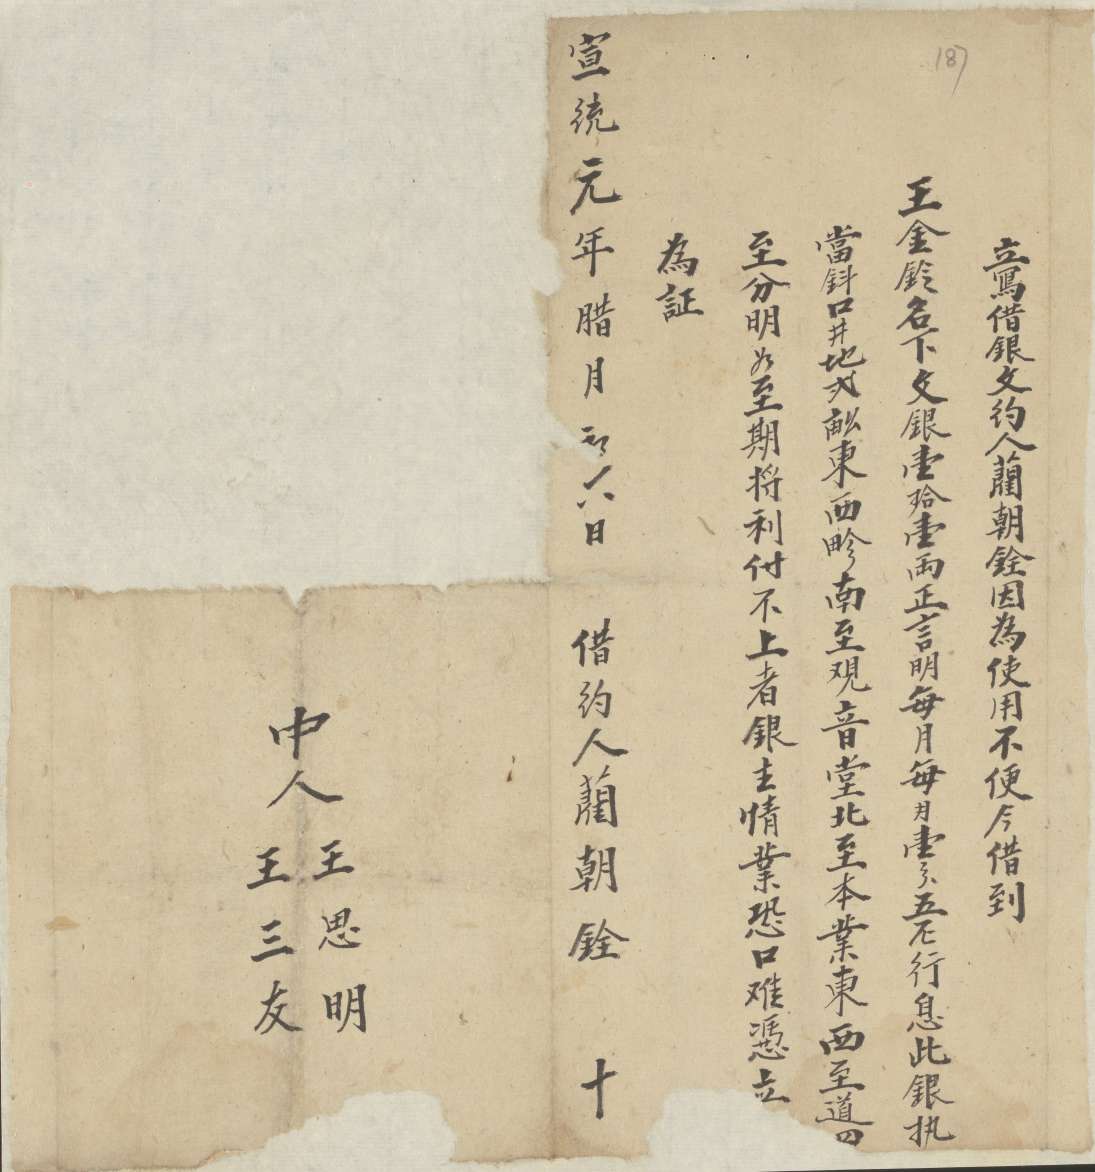 187
立寫借銀文約人藺朝銓因為使用不便今借到
王金鈴名下文銀壹拾壹兩正言明每月每月壹分五厘行息此銀执
當斜口井地弍畝東西畛南至观音堂北至本業東西至道四
至分明如至期将利付不上者銀主情業恐口难憑立
為証
宣統元年腊月初八日 借約人藺朝銓 十
中人 王思明
王三友